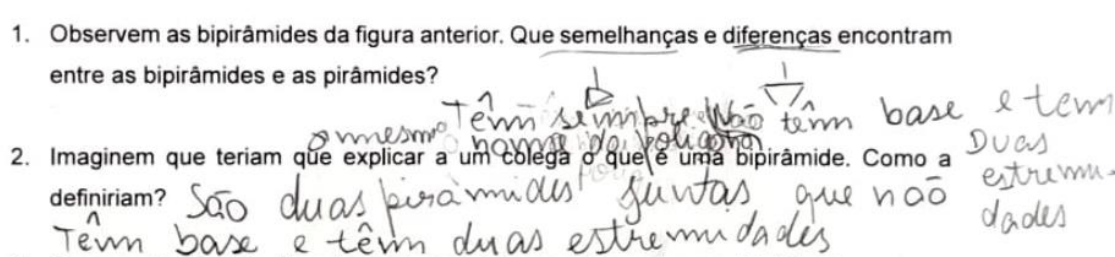 1. Observem as bipirâmides da figura anterior. Que semelhanças e diferenças encontram
entre as bipirâmides e as pirâmides?
Têm sempre Não têm base e tem
o mesmo nome do poligono Duas
2. Imaginem que teriam que explicar a um colega o que é uma bipirâmide. Como a
estremidades
definiriam? São duas pirâmides juntas que não
Têm base e têm duas estremidades